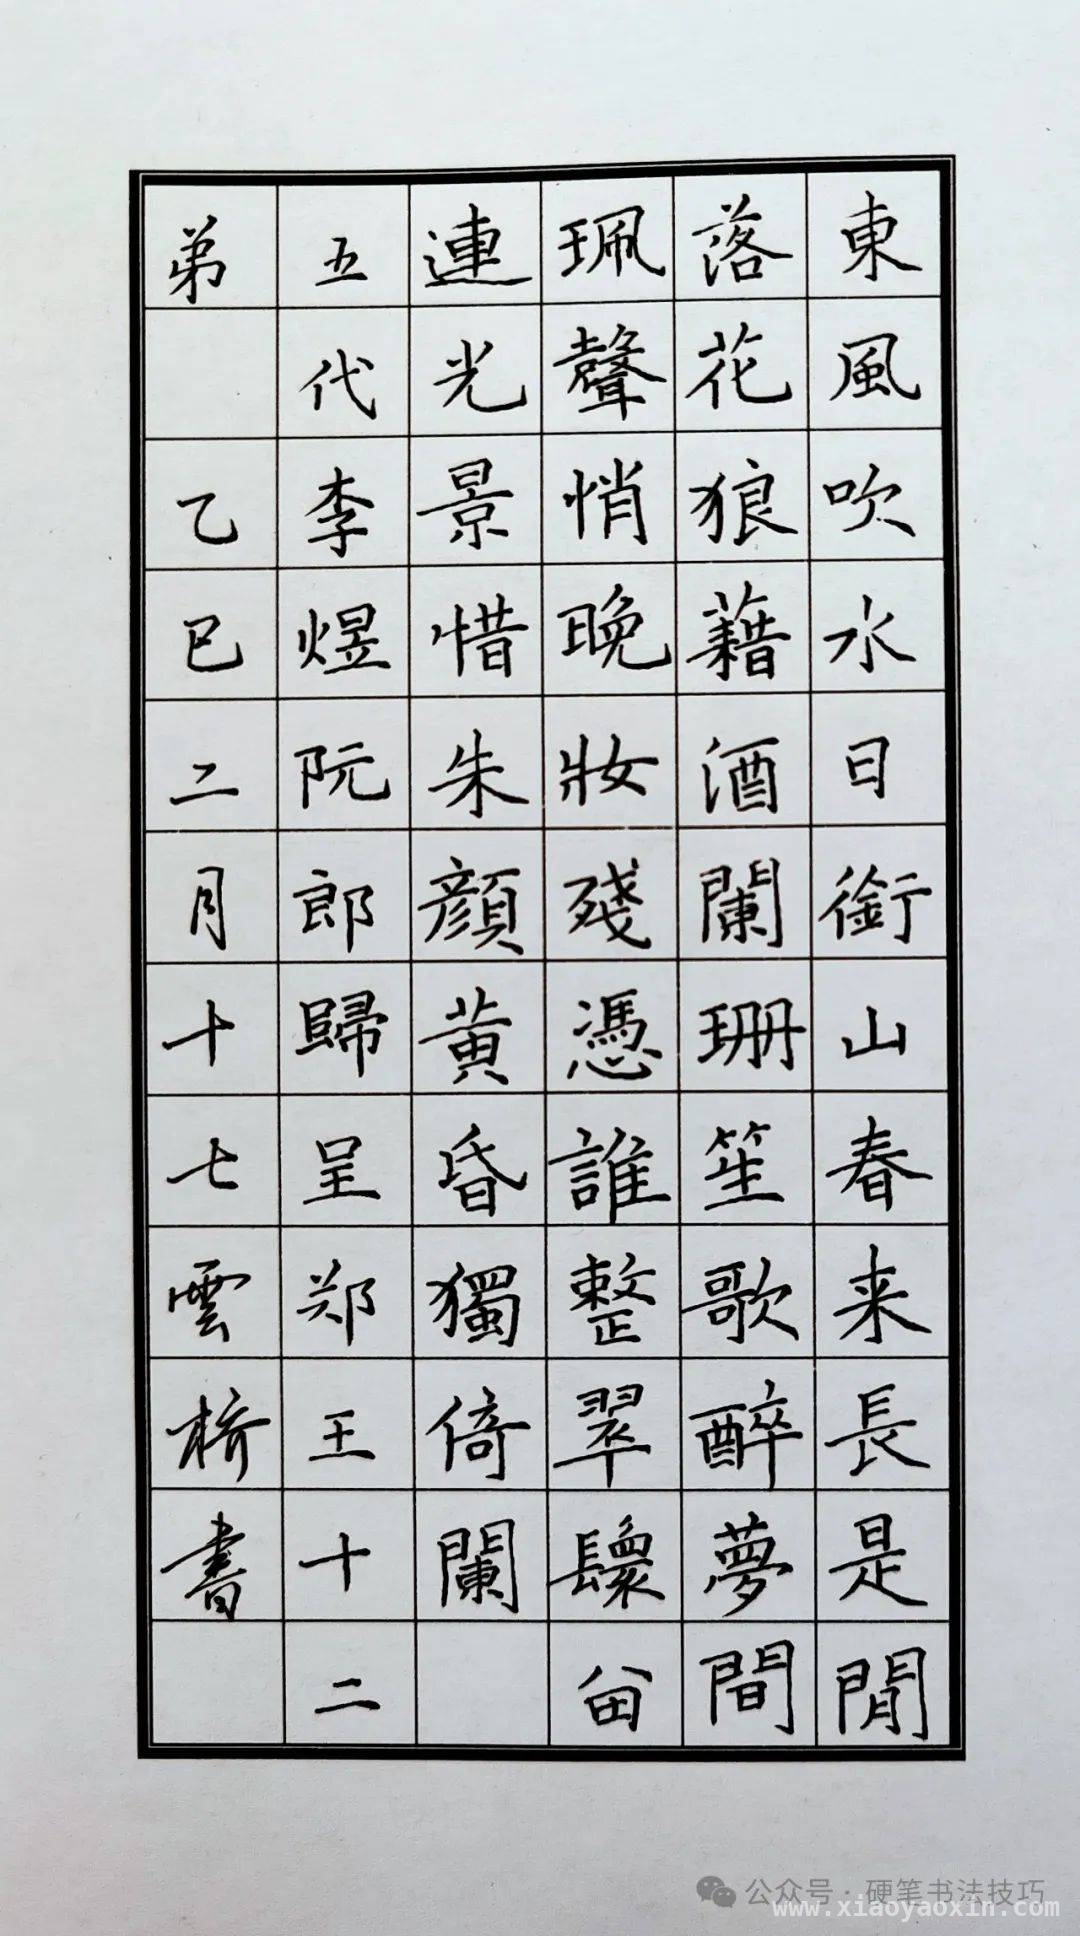 東風吹水日銜山春来長是閒
落花狼藉酒闌珊笙歌醉夢間
珮聲悄晚妝殘憑誰整翠鬟畄
連光景惜朱顔黄昏獨倚闌
五代李煜阮郎歸呈郑王十二
弟 乙巳二月十七雲橋書
公众号·硬笔书法技巧
www.xiaoyaoxin.com